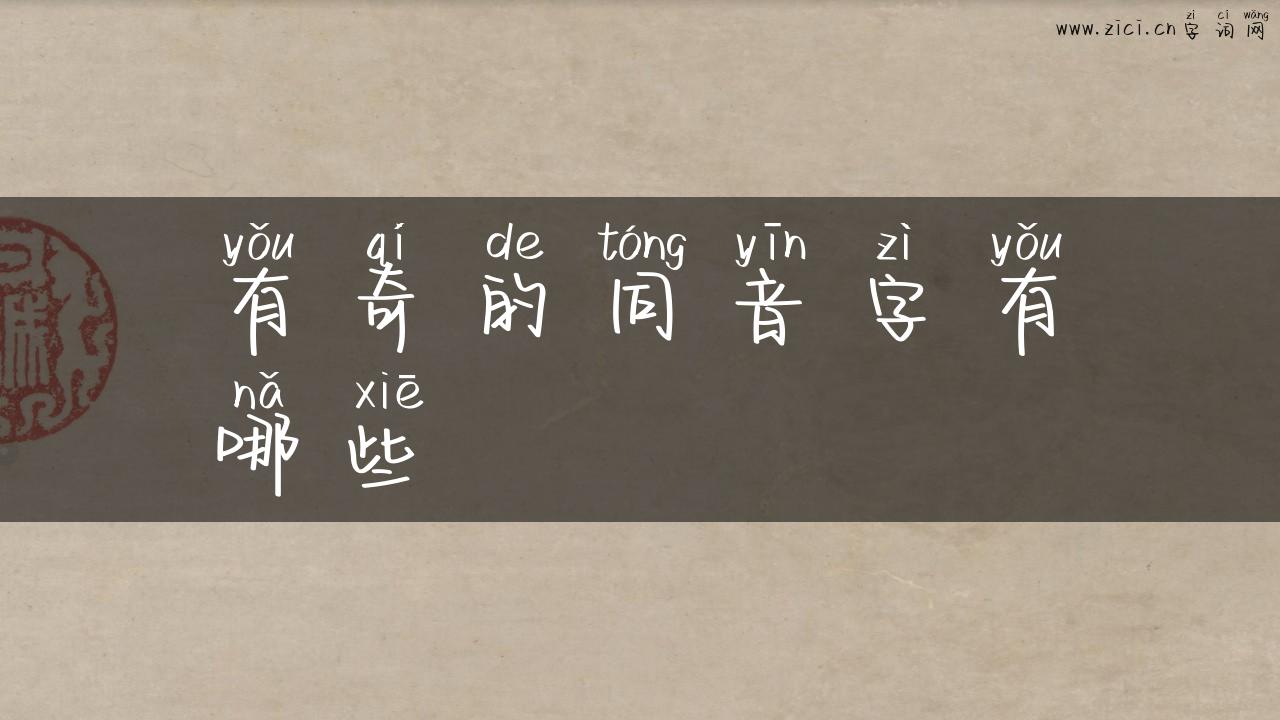 zì cí wǎng
www.zici.cn 字词网
yǒu qí de tóng yīn zì yǒu
有奇的同音字有
nǎ xiē
哪些